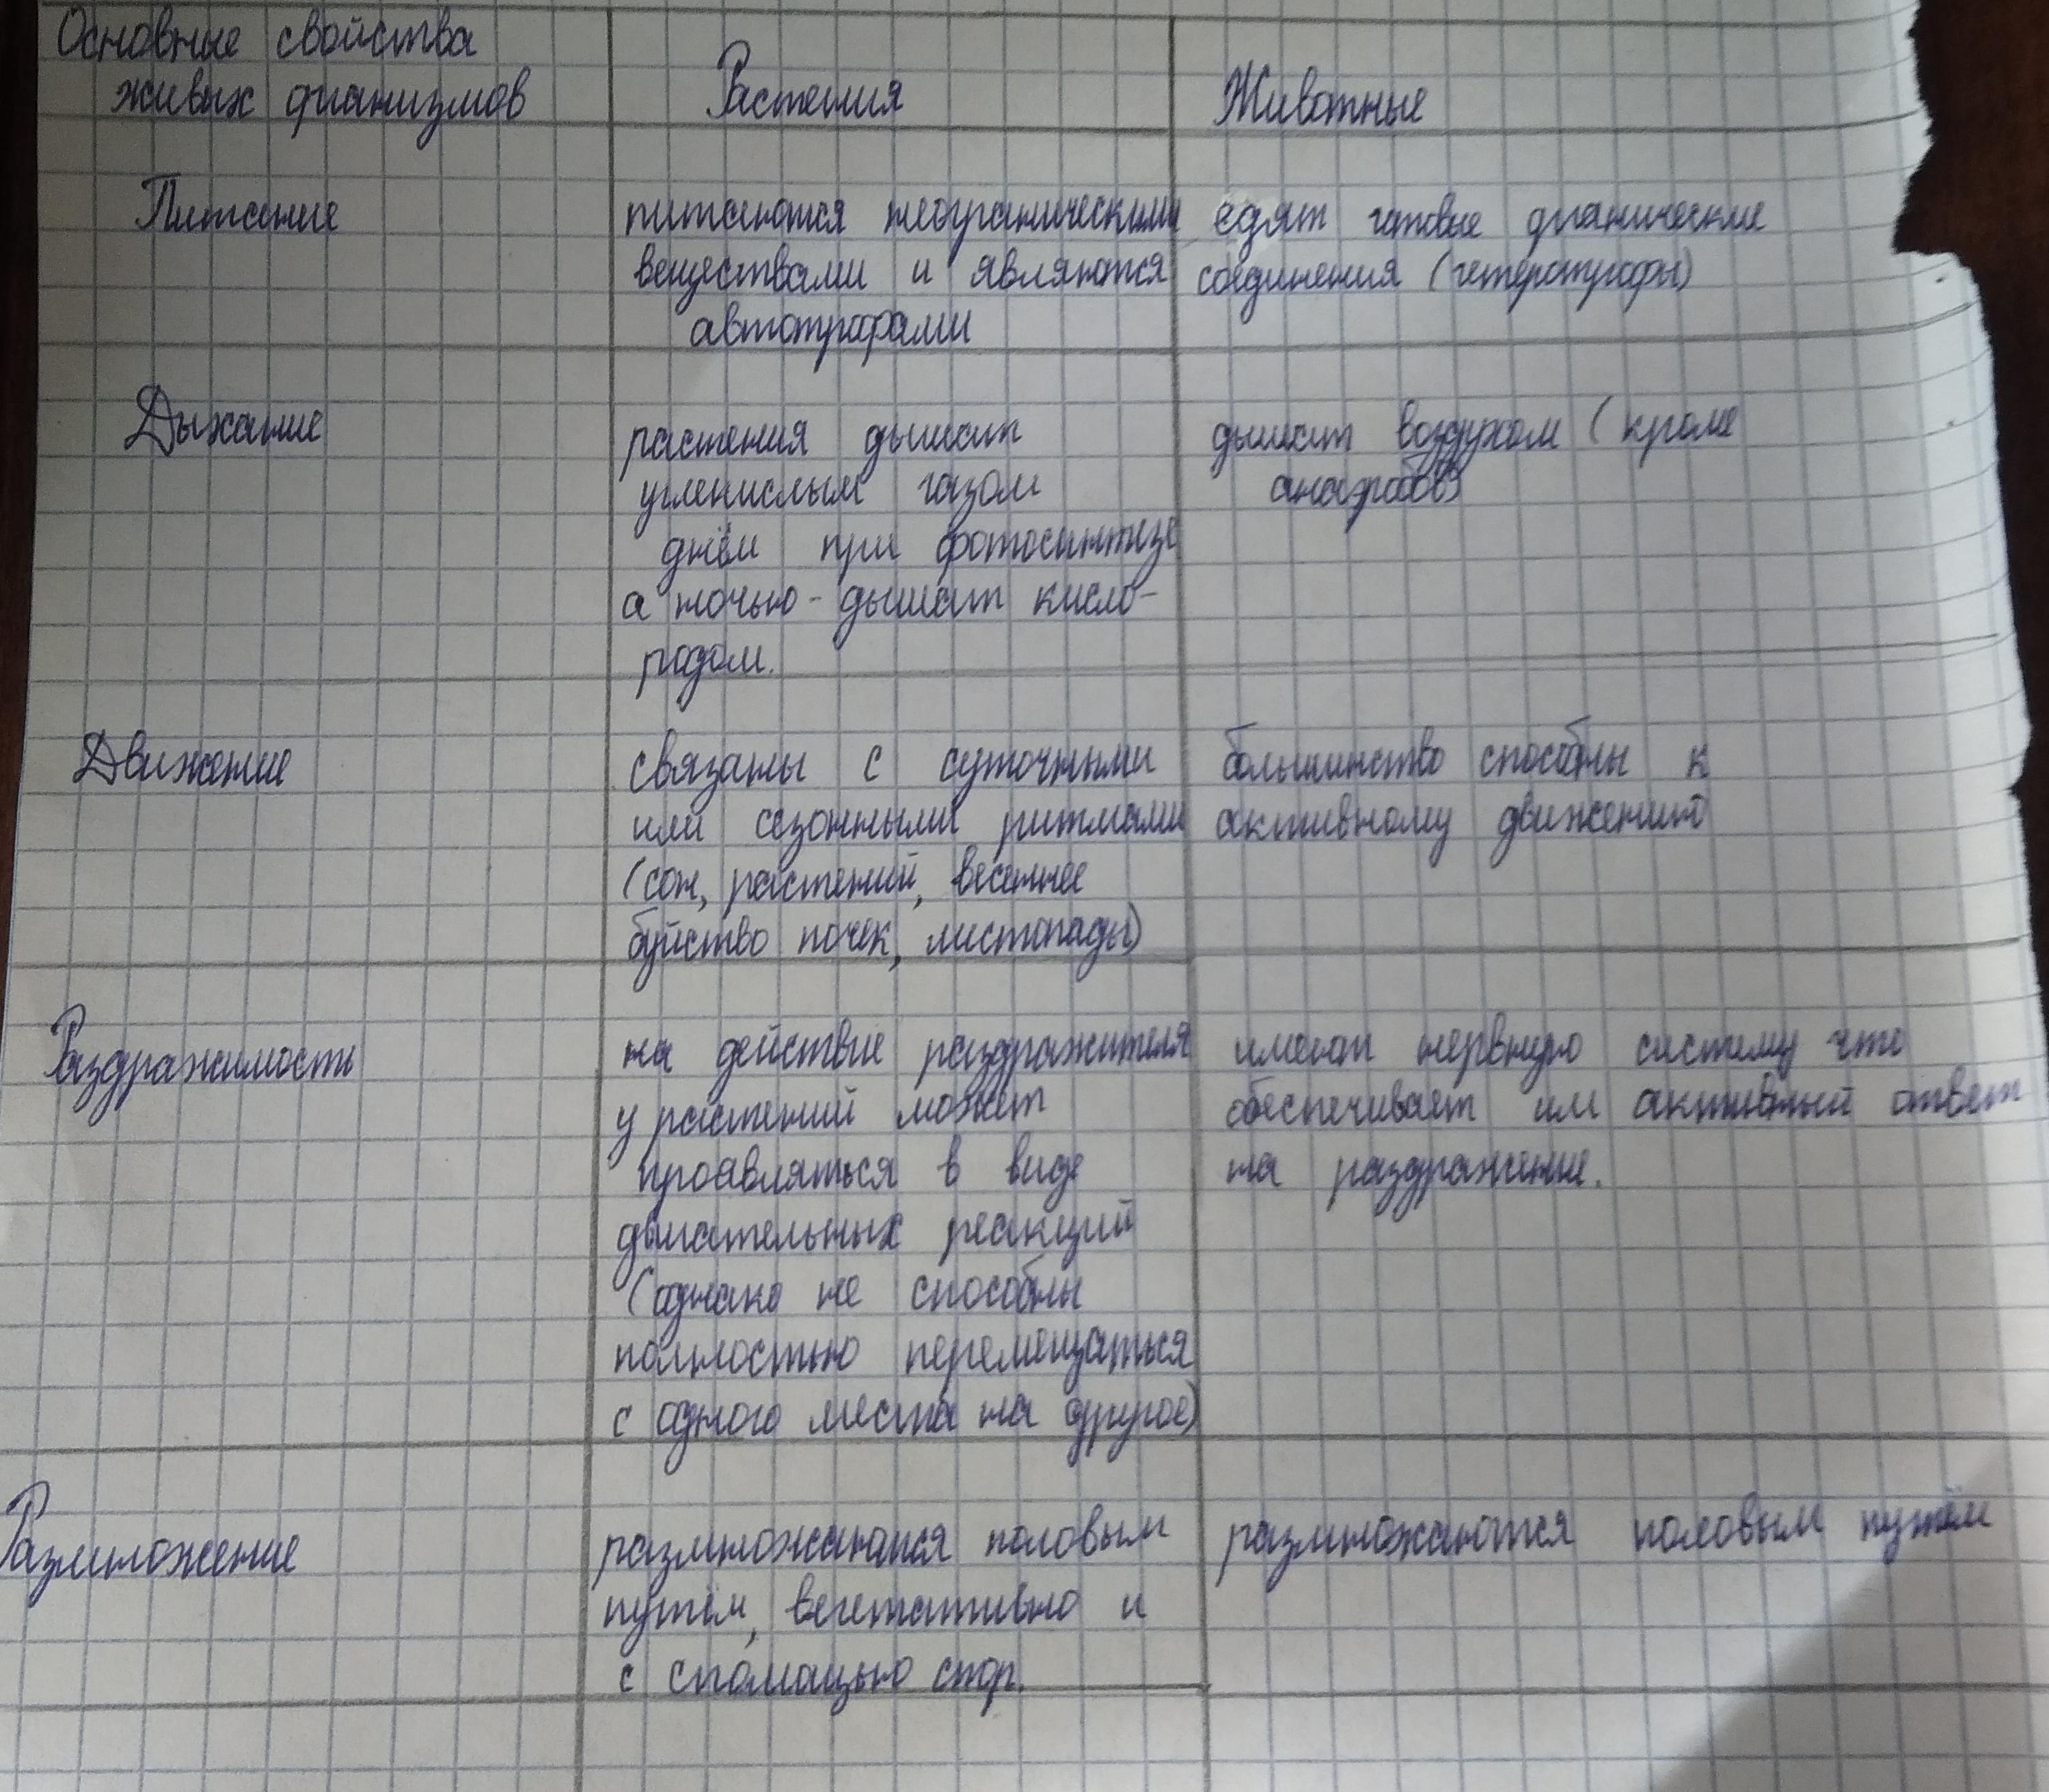 Основные свойства
живых организмов
Растения
Животные
Питание
питаются неограническими
веществами и являются
автотрофами
едят готовые органические
соединения (гетеротрофы)
Дыхание
растения дышат
углекислым газом
днём при фотосинтезе
а ночью - дышат кисло-
родом.
дышат воздухом (кроме
анаэробов)
Движение
связаны с суточными
или сезонными ритмами
(сон, растений, весеннее
буйство почек, листопады)
большинство способны к
активному движению
Раздражимость
на действие раздражителя
у растений может
проявляться в виде
двигательных реакций
(однако не способны
полностью перемещаться
с одного места на другое)
имеют нервную систему что
обеспечивает им активный ответ
на раздражение.
Размножение
размножаются половым
путём, вегетативно и
с спомощью спор.
размножаются половым путём